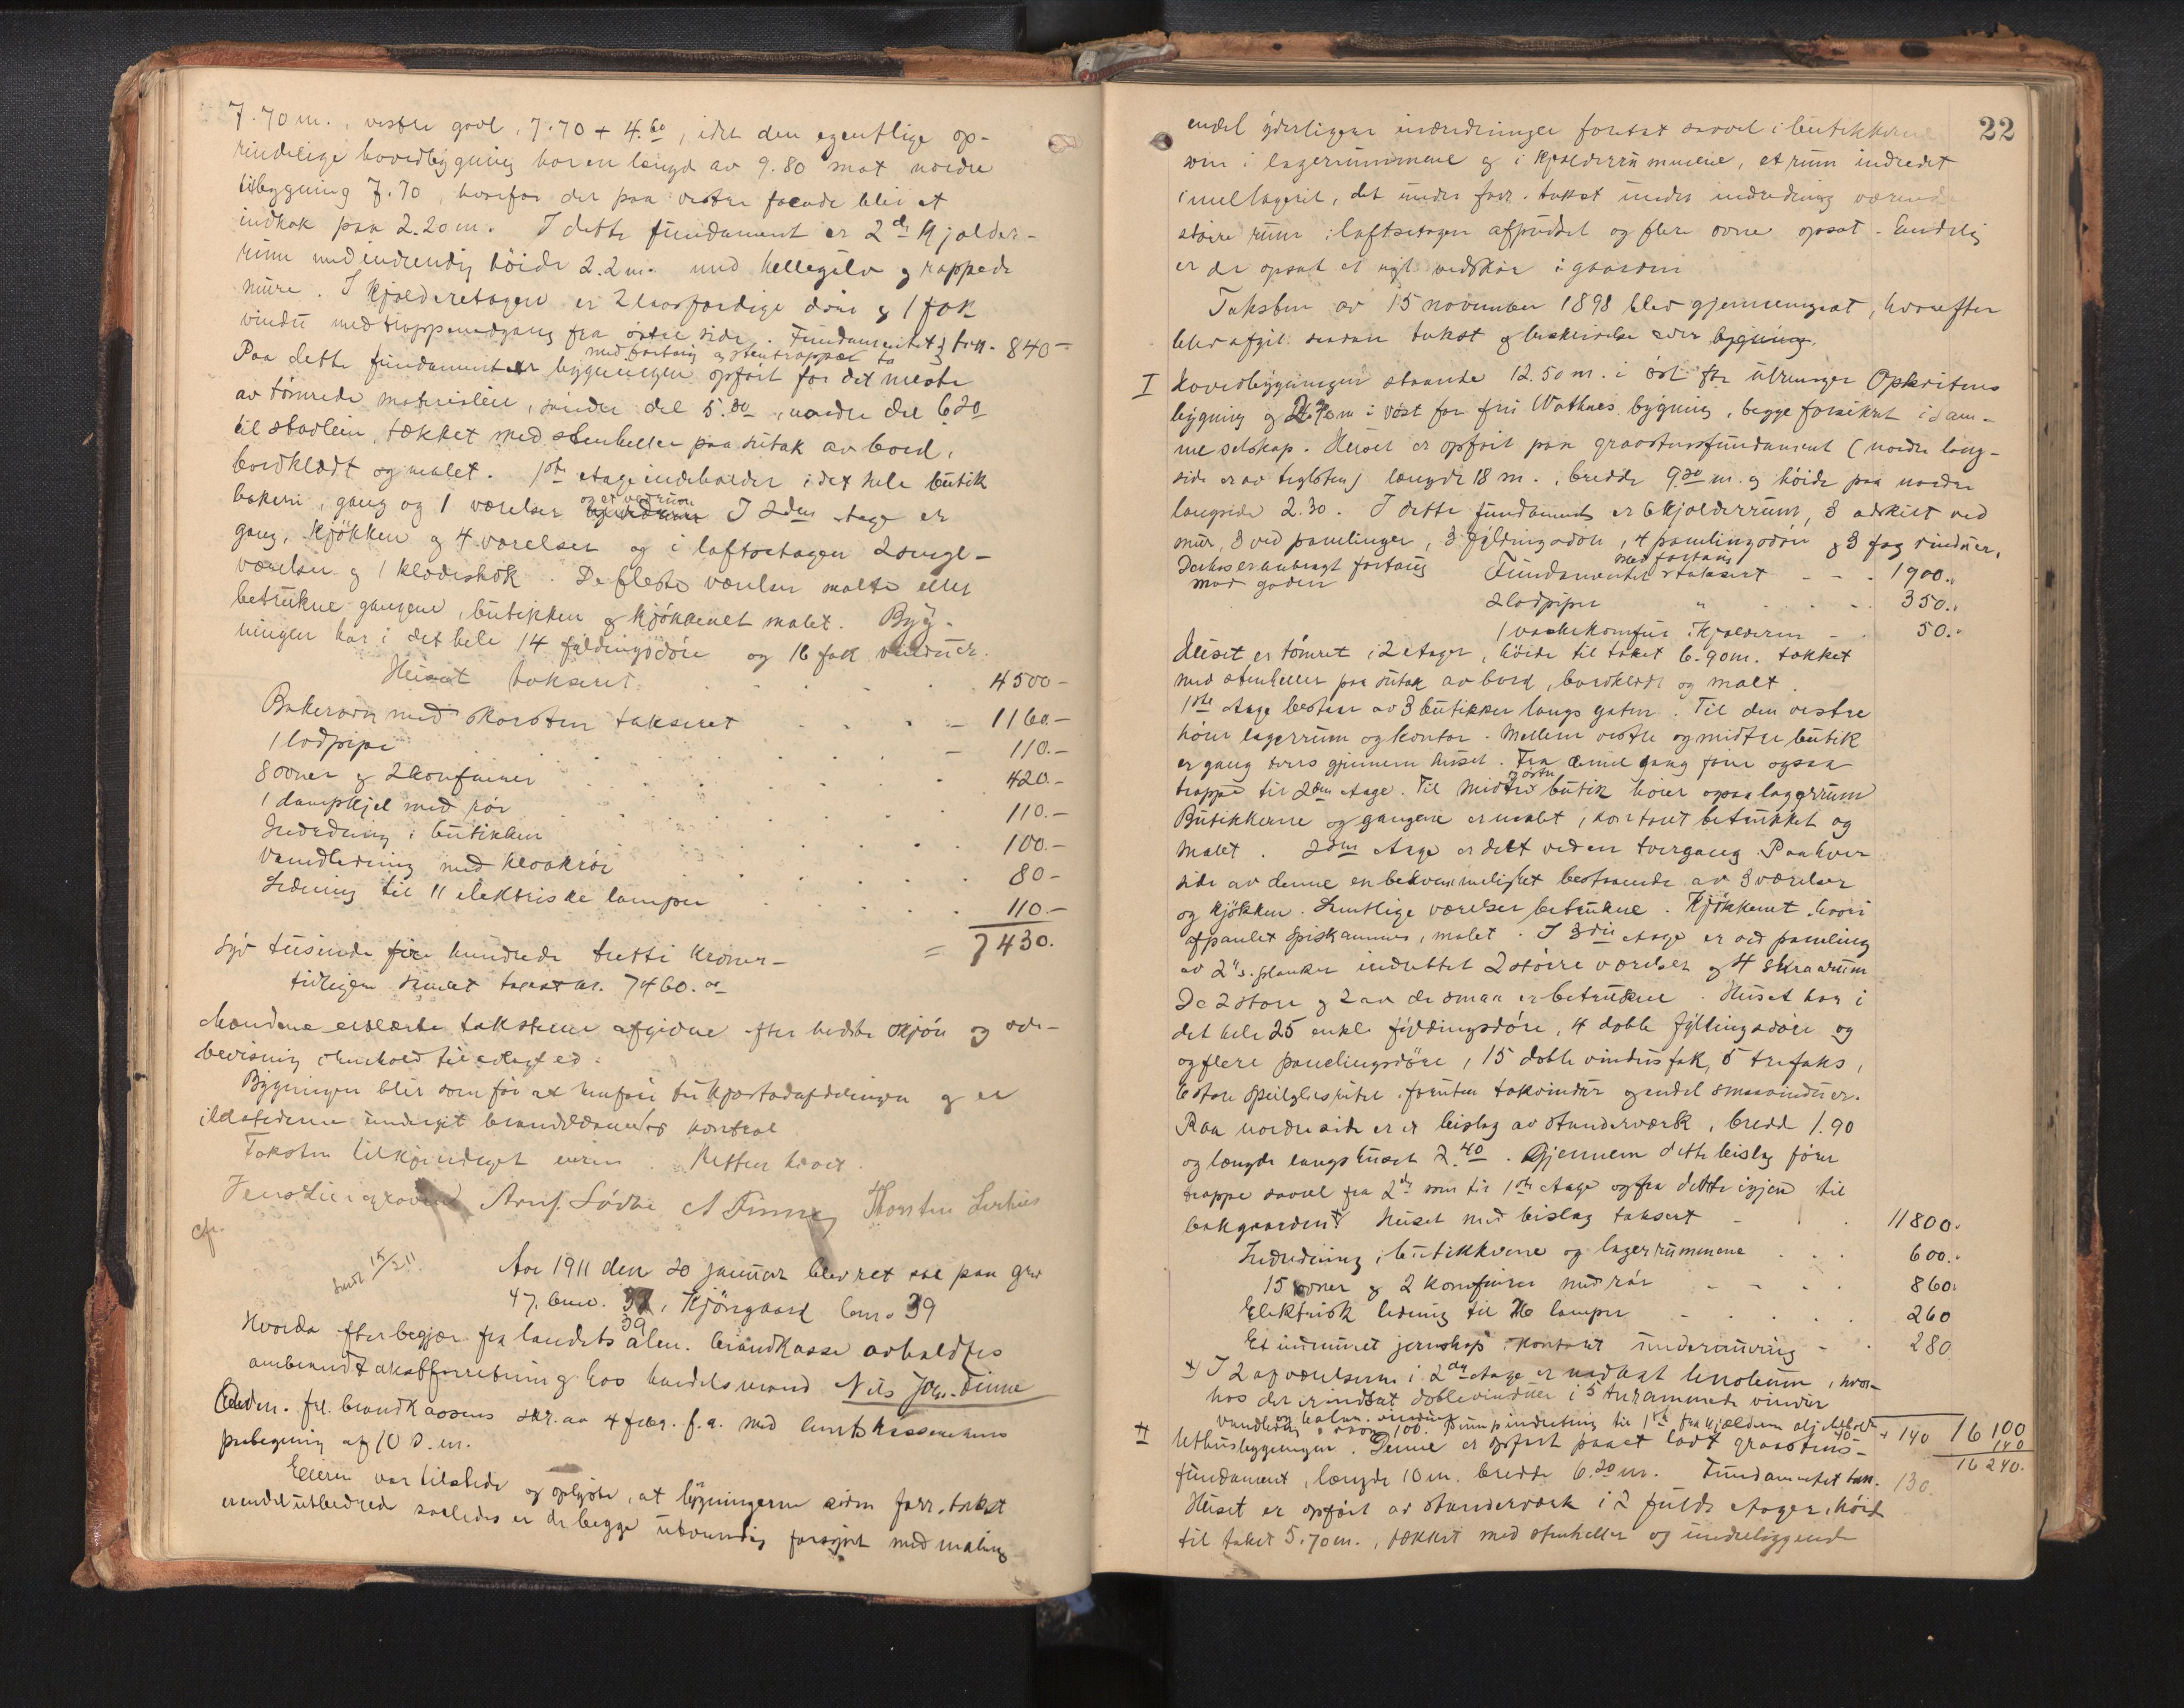 7.70 m., vestre gavl, 7.70 + 4.60, idet den egentlige op-
rindelige hovedbygning har en længd av 9.80 mot nordre
tilbygning 7.70, hvorfor der paa vestre facade blir et
indhak paa 2.20 m. I dette fundament er 2de kjælder-
rum med indvendig höide 2.2 m. med hellegulv og rappede
mure. I kjælderetagen er 2 laasfærdige döre og 1 fak
vindu med trappenedgang fra östre side. Fundamentet tax. 840 -
med fortaug og stentrapper
Paa dette fundament er bygningen opfört for det meste
av tömrede materialer, söndre del 5.80, nordre del 6.20
til stavlein, tækket med stenheller paa sutak av bord,
bordklædt og malet. 1ste etage indeholder i det hele butik
bakeri, gang og 1 værelse og et vedrum I 2den etage er
gang, kjökken og 4 værelser og i loftsetagen 2 senge-
værelser og 1 klædeskok. De fleste værelser malte eller
betrukne gangene, butikken og kjökkenet malet. Byg-
ningen har i det hele 14 fyldingsdöre og 16 fak vinduer.
Huset takseret 4500 -
Bakerovn med skorsten takseret 1160. -
1 lodpipe 110. -
8 ovner og 2 komfurer 420. -
1 dampkjel med rör 110. -
Indredning i butikken 100. -
Vandledning med kloakrör 80 -
Ledning til 11 elektriske lamper 110. -
Syv tusinde fire hundrede tretti kroner - = 7430.
tidligere samlet takst kr. 7460.00
Mændene erklærte taksterne afgivne efter bedste skjön og over-
bevisning i henhold til avlagt ed.
Bygningen blir som för at henföre til kjöpstadafdelingen og er
ildstederne undergit brandvæsenets kontrol
Taksten tilkjendegit eieren. Retten hævet.
Jens Liengraven Arnf. Södte A Finne Thorsten Lerhus
cfr.
Sendt 15/2 11.
Aar 1911 den 20 januar blev ret sat paa grd
47, bnr. 39 i Kjönsgaard bnr. 39
39
Hvorda efter begjær fra landets alm. brandkasse avholdtes
ombrandtakstforretning hos handelsmand Nils Johs. Finne
Edv. frl. brandkassens skr. av 4 febr. f.a. med amtskassererens
paategning af 10 s.m.
Eieren var tilstede og oplyste, at bygningerne siden forr. takst
er endel utbedrede saaledes er de begge utvendig forsynt med maling
22
endel yderligere indredninger foretat saavel i butikkerne
som i lagerrummene og i kjælderrummene, et rum indredet
i mellageril, det under forr. takst under indredning værende
större rum i loftsetagen afpudset og flere ovne opsat. Endelig
er der opsat et nyt vedskur i gaarden
Taksten av 15 november 1898 blev gjennemgaat, hvorefter
blev afgit saadan takst og beskrivelse over bygning.
I Hovedbygningen staaende 12.50 m. i öst for utvunger Opheims
bygning og m i vest for fru Wathnes bygning, begge forsikret i sam-
me selskap. Huset er opfört paa graastensfundament (nordre lang-
side er av teglsten) længde 18 m., bredde 9.20 m. og höide paa nordre
langside 2.30. I dette fundament er 6 kjælderrum, 3 adskilt ved
mur, 3 ved panelinger, 3 fyldingsdöre, 4 panelingsdöre og 3 fag vinduer.
Derhos er anbragt fortaug Fundamentet med fortaug taksert 1900.
mot gaden
2 lodpiper " 350.
1 vaskekomfur i kjælderen 50.
Huset er tömret i 2 etager, höide til taket 6.90 m. tækket
med stenheller paa sutak av bord, bordklædt og malt.
1ste etage bestaar av 3 butikker langs gaten. Til den vestre
hörer lagerrum og kontor. Mellem vestre og midtre butik
er gang tvers gjennem huset. Fra denne gang förer ogsaa
trappe til 2den etage. Til midtre og östre butik hörer ogsaa lagerrum
Butikkerne og gangene er malet, kontoret betrukket og
malet. 2den etage er delt ved en tvergang. Paa hver
side av denne en bekvemmelighet bestaaende av 3 værelser
og kjökken. Samtlige værelser betrukne. Kjökkenet, hvori
afpanlet spiskammer, malet. I 3die etage er ved paneling
av 2"s planker indrettet 2 större værelser og 4 skraarum
De 2 store og 2 av de smaa er betrukne. Huset har i
det hele 25 enkle fyldingsdöre, 4 doble fyldingsdöre og
og flere panelingsdöre, 15 doble vindusfak, 5 trefaks,
6 store speilglasruter foruten takvinduer og endel smaavinduer.
Paa nordre side er et bislag av stenderværk, bredd 1.90
og længde langs huset 2.40. Gjennem dette bislag förer
trappe saavel fra 2den som til 1ste etage og fra dette igjen til
bakgaarden + Huset med bislag taksert 11800.
Indredning i butikkerne og lagerrummene 600.
15 ovner og 2 komfurer med rör 860.
Elektrisk ledning til 26 lamper 260
Et indmuret jernskap i kontoret undermuring 280
+) I 2 af værelserne i 2den etage er nedlagt linoleum, hvor-
hos der er indsat doblevinduer i 5 trerammede vinduer
vandledning og indredn. 100. Pumpindretning til 1ste fra kjælderen 40 + 140 16 100
140
16 240.
II Uthusbygningen. Denne er opfört paa et lodt graastens-
fundament, længde 10 m. bredde 6.20 m. Fundamentet tax. 130.
Huset er opfört av stenderværk i 2 fulde etager, höide
til taket 5.70 m., tækket med stenheller og underliggende